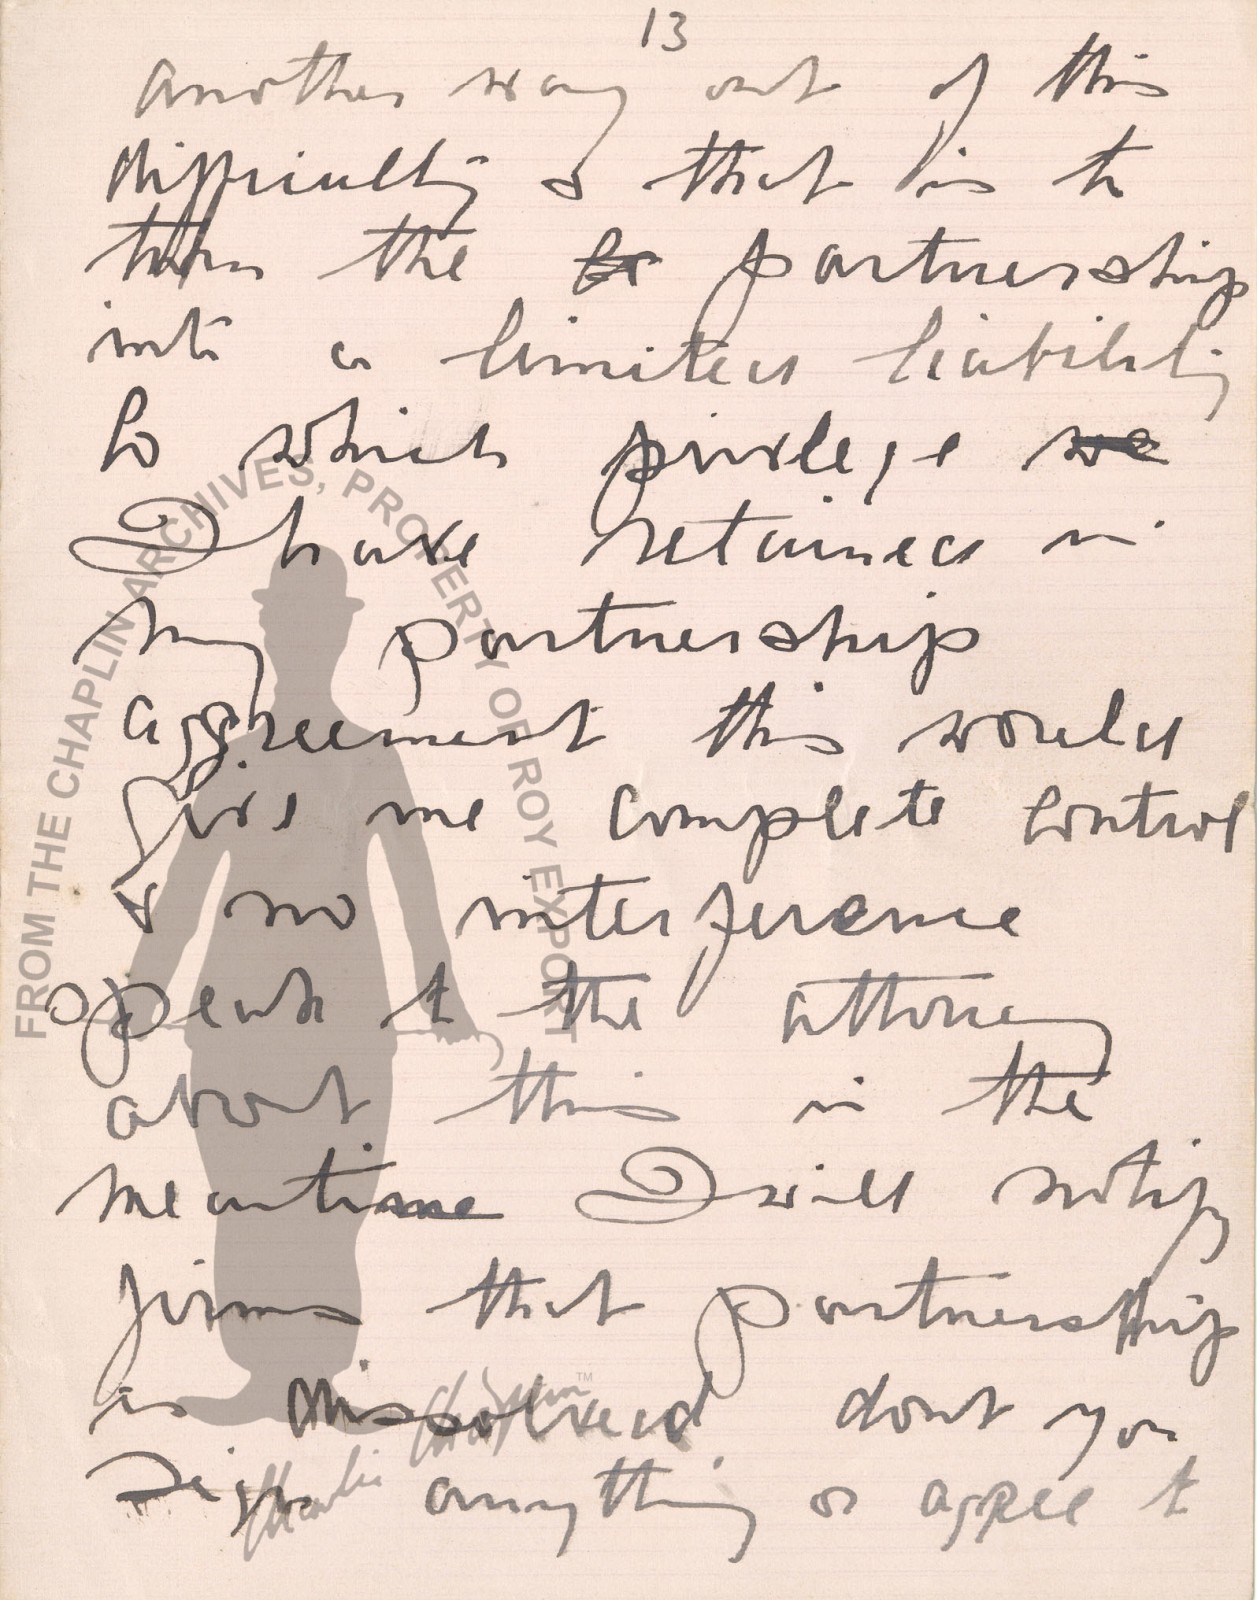 13
another way out of this
difficulty & that is to
turn the partnership
into a limited liability
Co which privilege we
I have retained in
my partnership
aggreement this would
give me complete control
& no interference
speak to the attorney
about this in the
meantime I will notify
firms that partnership
is dissolved dont you
sign anything or agree to
FROM THE CHAPLIN ARCHIVES, PROPERTY OF ROY EXPORT
Charlie Chaplin™